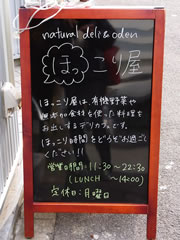 natural deli & oden
ほっこり屋
ほっこり屋は、有機野菜や
自然の食材を使った料理を
お出しするデリカフェです。
ほっこり時間をどうぞお過ごし
ください!!
営業時間:11:30〜22:30
(LUNCH 〜14:00)
定休日:月曜日